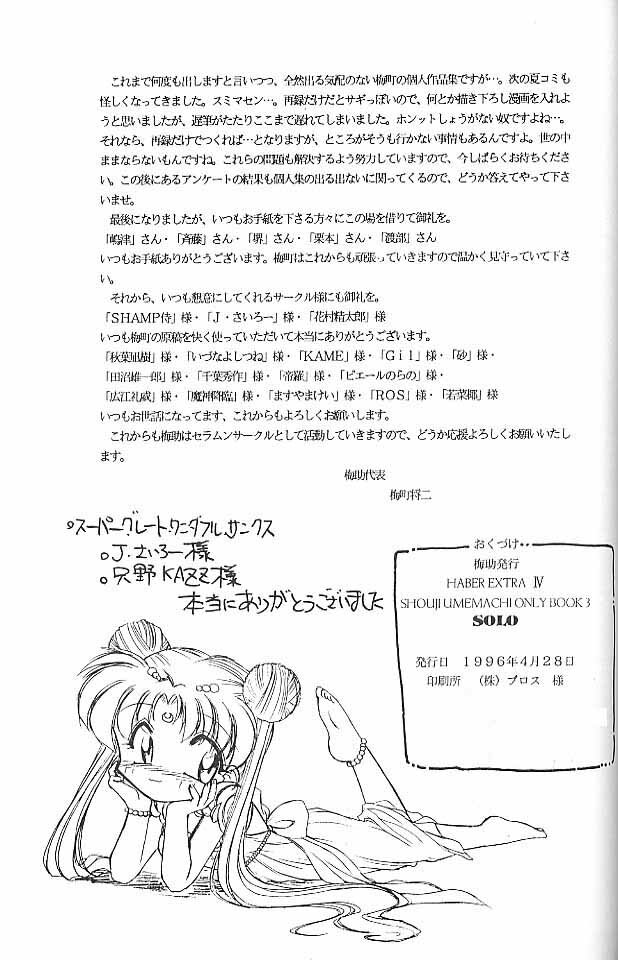 これまで何度も出しますと言いつつ、全然出る気配のない梅町の個人作品集ですが…。次の夏コミも
怪しくなってきました。スミマセン…。再録だけだとサギっぽいので、何とか描き下ろし漫画を入れよ
うと思いましたが、遅筆がたたりここまで遅れてしまいました。ホンットしょうがない奴ですよね…。
それなら、再録だけでつくれば…となりますが、ところがそうも行かない事情もあるんですよ。世の中
ままならないもんですね。これらの問題も解決するよう努力していますので、今しばらくお待ちくださ
い。この後にあるアンケートの結果も個人集の出る出ないに関ってくるので、どうか答えてやって下さ
いませ。
最後になりましたが、いつもお手紙を下さる方々にこの場を借りて御礼を。
「嶋津」さん・「斉藤」さん・「堺」さん・「栗本」さん・「渡部」さん
いつもお手紙ありがとうございます。梅町はこれからも頑張っていきますので温かく見守っていて下さ
い。
それから、いつも懇意にしてくれるサークル様にも御礼を。
「SHAMP侍」様・「J・さいろー」様・「花村精太郎」様
いつも梅町の原稿を快く使っていただいて本当にありがとうございます。
「秋葉凪樹」様・「いづなよしつね」様・「KAME」様・「Gil」様・「砂」様・
「田沼雄一郎」様・「千葉秀作」様・「帝羅」様・「ピエールのらの」様・
「広江礼威」様・「魔神降臨」様・「ますやまけい」様・「ROS」様・「若菜椰」様
いつもお世話になってます、これからもよろしくお願いします。
これからも梅助はセラムンサークルとして活動していきますので、どうか応援よろしくお願いいたし
ます。
梅助代表
梅町将二
スーパーグレートワンダフルサンクス
J.さいろー様
只野KAZZ様
本当にありがとうございました
おくづけ
梅助発行
HABER EXTRA Ⅳ
SHOUJI UMEMACHI ONLY BOOK 3
SOLO
発行日 1996年4月28日
印刷所 （株）プロス 様